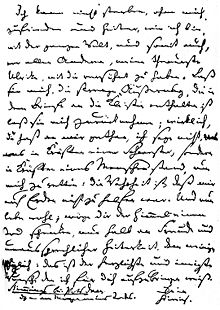 Ich kann nicht sterben, ohne mich,
zufrieden und heiter, wie ich bin,
mit der ganzen Welt, und somit auch,
vor allen Anderen, meine theuerste
Ulrike, mit dir versöhnt zu haben. Laß
sie mich, die strenge Äußerung, die in
dem Briefe an die Kleisten enthalten ist
laß sie mich zurücknehmen; wirklich,
du hast an mir gethan, ich sage nicht,
was in Kräften einer Schwester, sondern
in Kräften eines Menschen stand, um
mich zu retten: die Wahrheit ist, daß mir
auf Erden nicht zu helfen war. Und nun
lebe wohl; möge dir der Himmel einen
Tod schenken, nur halb an Freude und
unaussprechlicher Heiterkeit, dem meinigen
gleich: das ist der herzlichste und innigste
Wunsch, den ich für dich aufzubringen weiß.
Stimming bei Potsdam Dein
d. – am Morgen meines Todes. Heinrich.